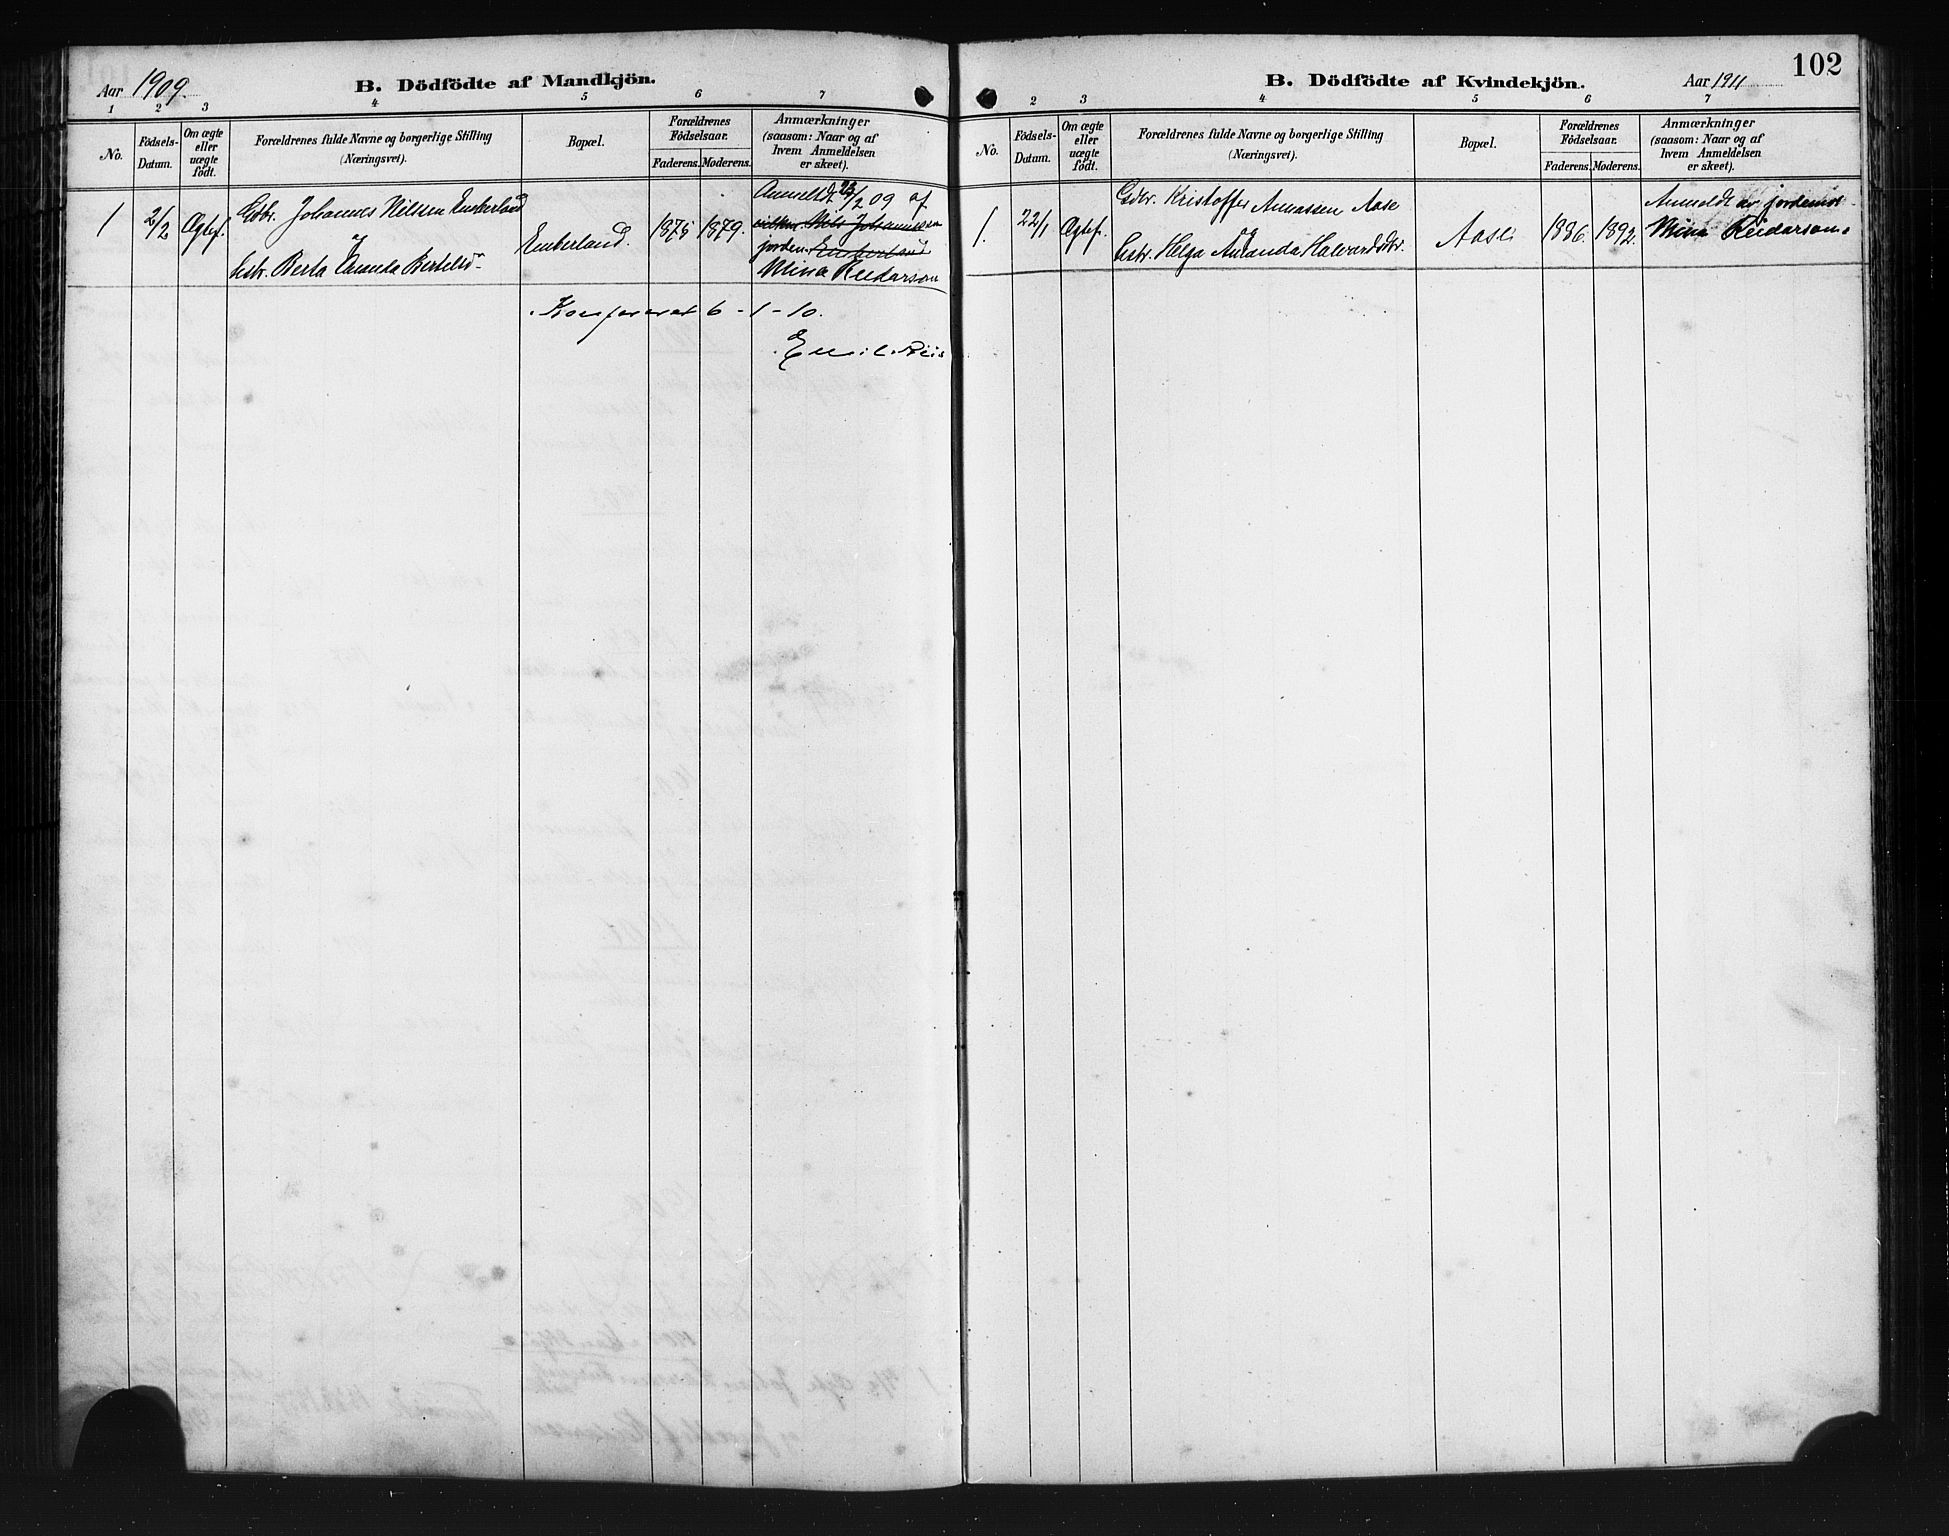 Aar 1909
B. Dödfödte af Mandkjön.
1 2 3 4 5 6 7
No.
Födsels-
Datum.
Om ægte
eller
uægte
födt.
Forældrenes fulde Navne og borgerlige Stilling
(Næringsvei).
Bopæl.
Forældrenes
Födselsaar.
Faderens. Moderens.
Anmærkninger
(saasom: Naar og af
hvem Anmeldelsen
er skeet).
1 2/2 Ægtef.
Gbr. Johannes Nilsen Emberland
og
hstr. Berta Amanda Bertelsdr
Emberland.
1875 1879.
Anmeldt 23/2 09 af
Nils Johannessen
jordem. Emberland
Mina Reidarson
Konfereret 6-1-10.
Emil
102
B. Dödfödte af Kvindekjön.
Aar 1911
2 3 4 5 6 7
No.
Födsels-
Datum.
Om ægte
eller
uægte
födt.
Forældrenes fulde Navne og borgerlige Stilling
(Næringsvei).
Bopæl.
Forældrenes
Födselsaar.
Faderens. Moderens.
Anmærkninger
(saasom: Naar og af
hvem Anmeldelsen
er skeet).
1. 22/1 Ægtef.
Gbr. Kristoffer Annassen Aase
og
hstr. Helga Amanda Halvardsdtr.
Aase
1886. 1892.
Anmeldt av jordemor
Mina Reidarson.